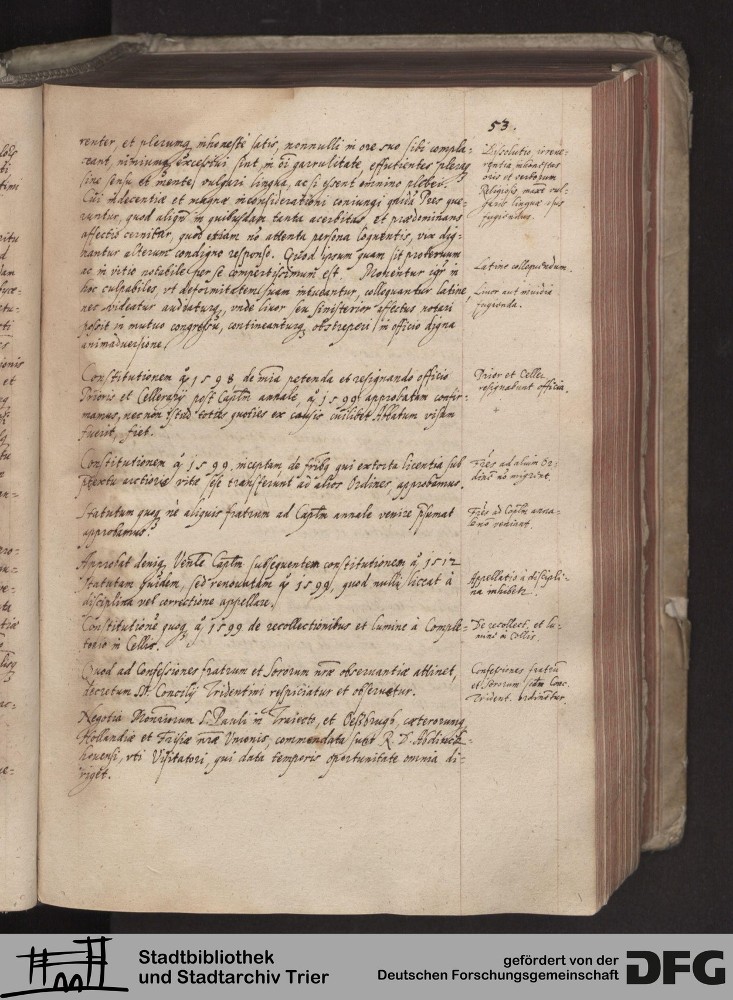 53.
renter, et plerumq; inhonestè satis, nonnulli in ore suo sibi compla-
ceant, nimiumq; excessivi sint in oi garrulitate effutientes pleraq;
sine sensu et mente, vulgari lingua, ac si essent omnino plebei.
Cui indecentiæ et magnæ inconsiderationi coniungi quidã Pres que-
runtur, quod aliqñ in quibusdam tanta acerbitas et prædominans
affectio cernitur, quod etiam nõ attenta persona loquentis, vix dig-
nantur alterum condigne responso. Quod ipsum quam sit protervum
ac in vitio notabile per se compertissimum est. Monentur igr in
hoc culpabiles, vt deformitatem suam intueantur, colloquantur latine,
nec videatur audiaturq; vnde livor seu sinisterior affectus notari
possit in mutuo congressu, contineanturq; obstreperi in officio digna
animadversione.
Constitutionem aº 1598 de mia petenda et resignando officio
Prioris et Cellerarij post Captm annale, aº 1599 approbatam confir-
mamus, nec non istud toties quoties ex causis cuilibet Abbatum visum
fuerit, fiet.
Constitutionem aº 1599. inceptam de fribq qui extorta licentia sub
prætextu arctioris vitæ sese transferunt ad alios Ordines, approbamus.
Statutum quoq; ne aliquis fratrum ad Captm annale venire præsumat
approbamus.
Approbat deniq; Venle Captm subsequentem constitutionem aº 1512
statutam quidem, sed renovatam aº 1599, quod nulli liceat à
disciplina vel correctione appellare.
Constitutione quoq; aº 1599 de recollectionibus et lumine à Comple-
torio in Cellis.
Quod ad Confessiones fratrum et Sororum nræ observantiæ attinet,
decretum St. Concilij Tridentini respiciatur et observetur.
Negotia Monriorum S. Pauli in Traiecto, et Oestbrugh, cæterorumq;
Hollandiæ et Frisiæ nræ Vnionis, commendata sunt R. D. Abdinck-
hovensi, vti Visitatori, qui data temporis oportunitate omnia di-
riget.
Dissolutio, irreve-
rentia, inhonestas
oris et verborum
Religioso, maxe vul-
garis linguæ usus
fugiendus.
Latine colloquendum.
Livor aut invidia
fugienda.
Prior et Celler.
resignabunt officia.
Fres ad alium Or-
dine nõ migrent.
Fres ad Captm anna-
le nõ veniant.
Appellatio à discipli-
na inhibetr.
De recollect. et lu-
mine in Cellis.
Confessiones fratrũ
et Sororum scdm Conc.
Trident. ordinentur.
Stadtbibliothek
und Stadtarchiv Trier
gefördert von der
Deutschen Forschungsgemeinschaft
DFG